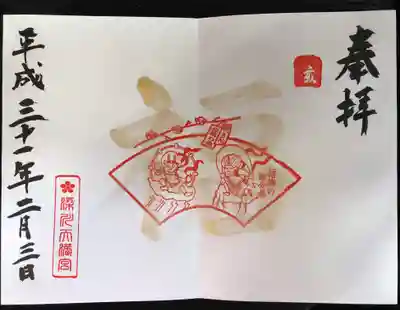 奉拝
亥
平成三十一年二月三日
深志天満宮